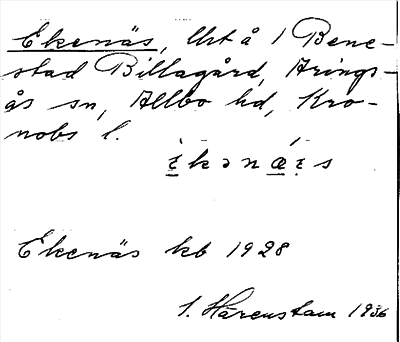 Ekenäs, Urt å 1 Bene-
stad Billagård, Arings-
ås sn, Allbo hd, Kro-
nobs l.
Ekenäs kb 1928
S. Härenstam 1936